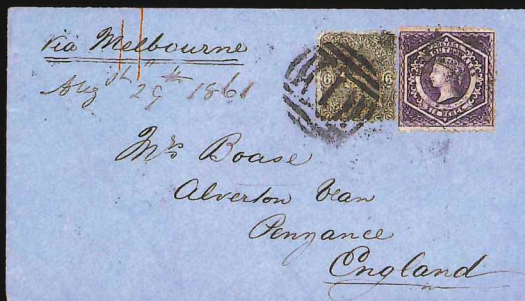 via Melbourne
Aug 29th 1861
Mrs Boase
Alverton Vean
Penzance
England
6
6